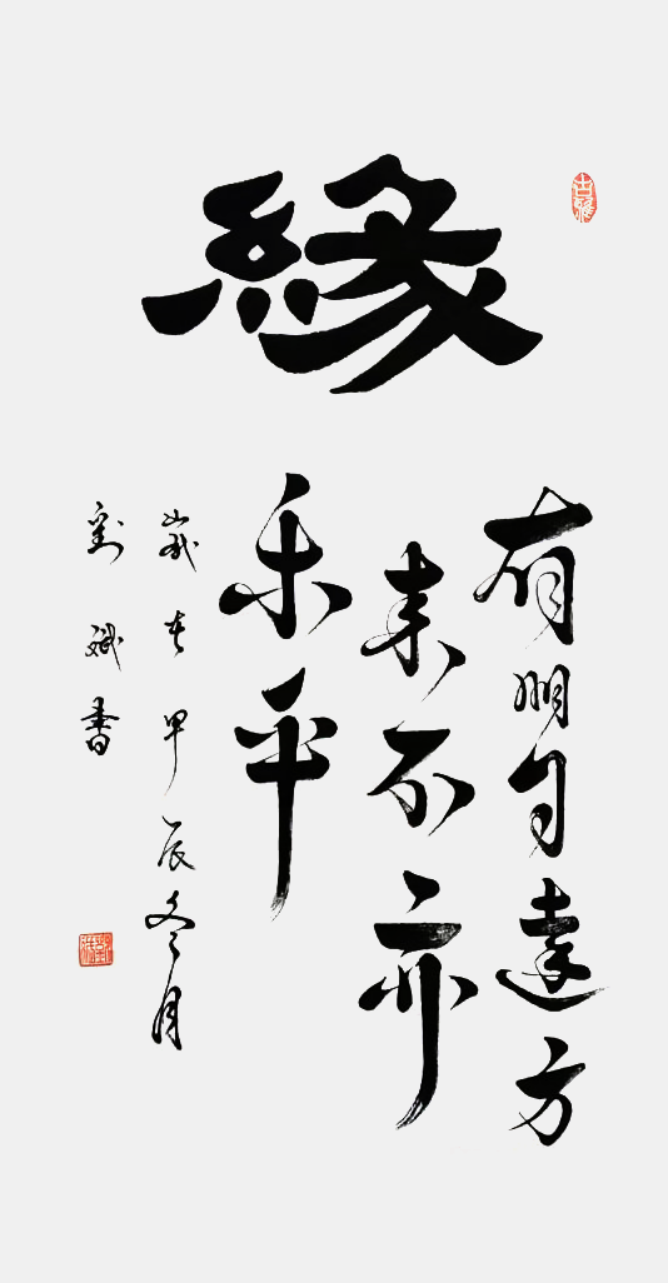 緣
有朋自遠方
来不亦
乐乎
歲在甲辰冬月
劉斌書